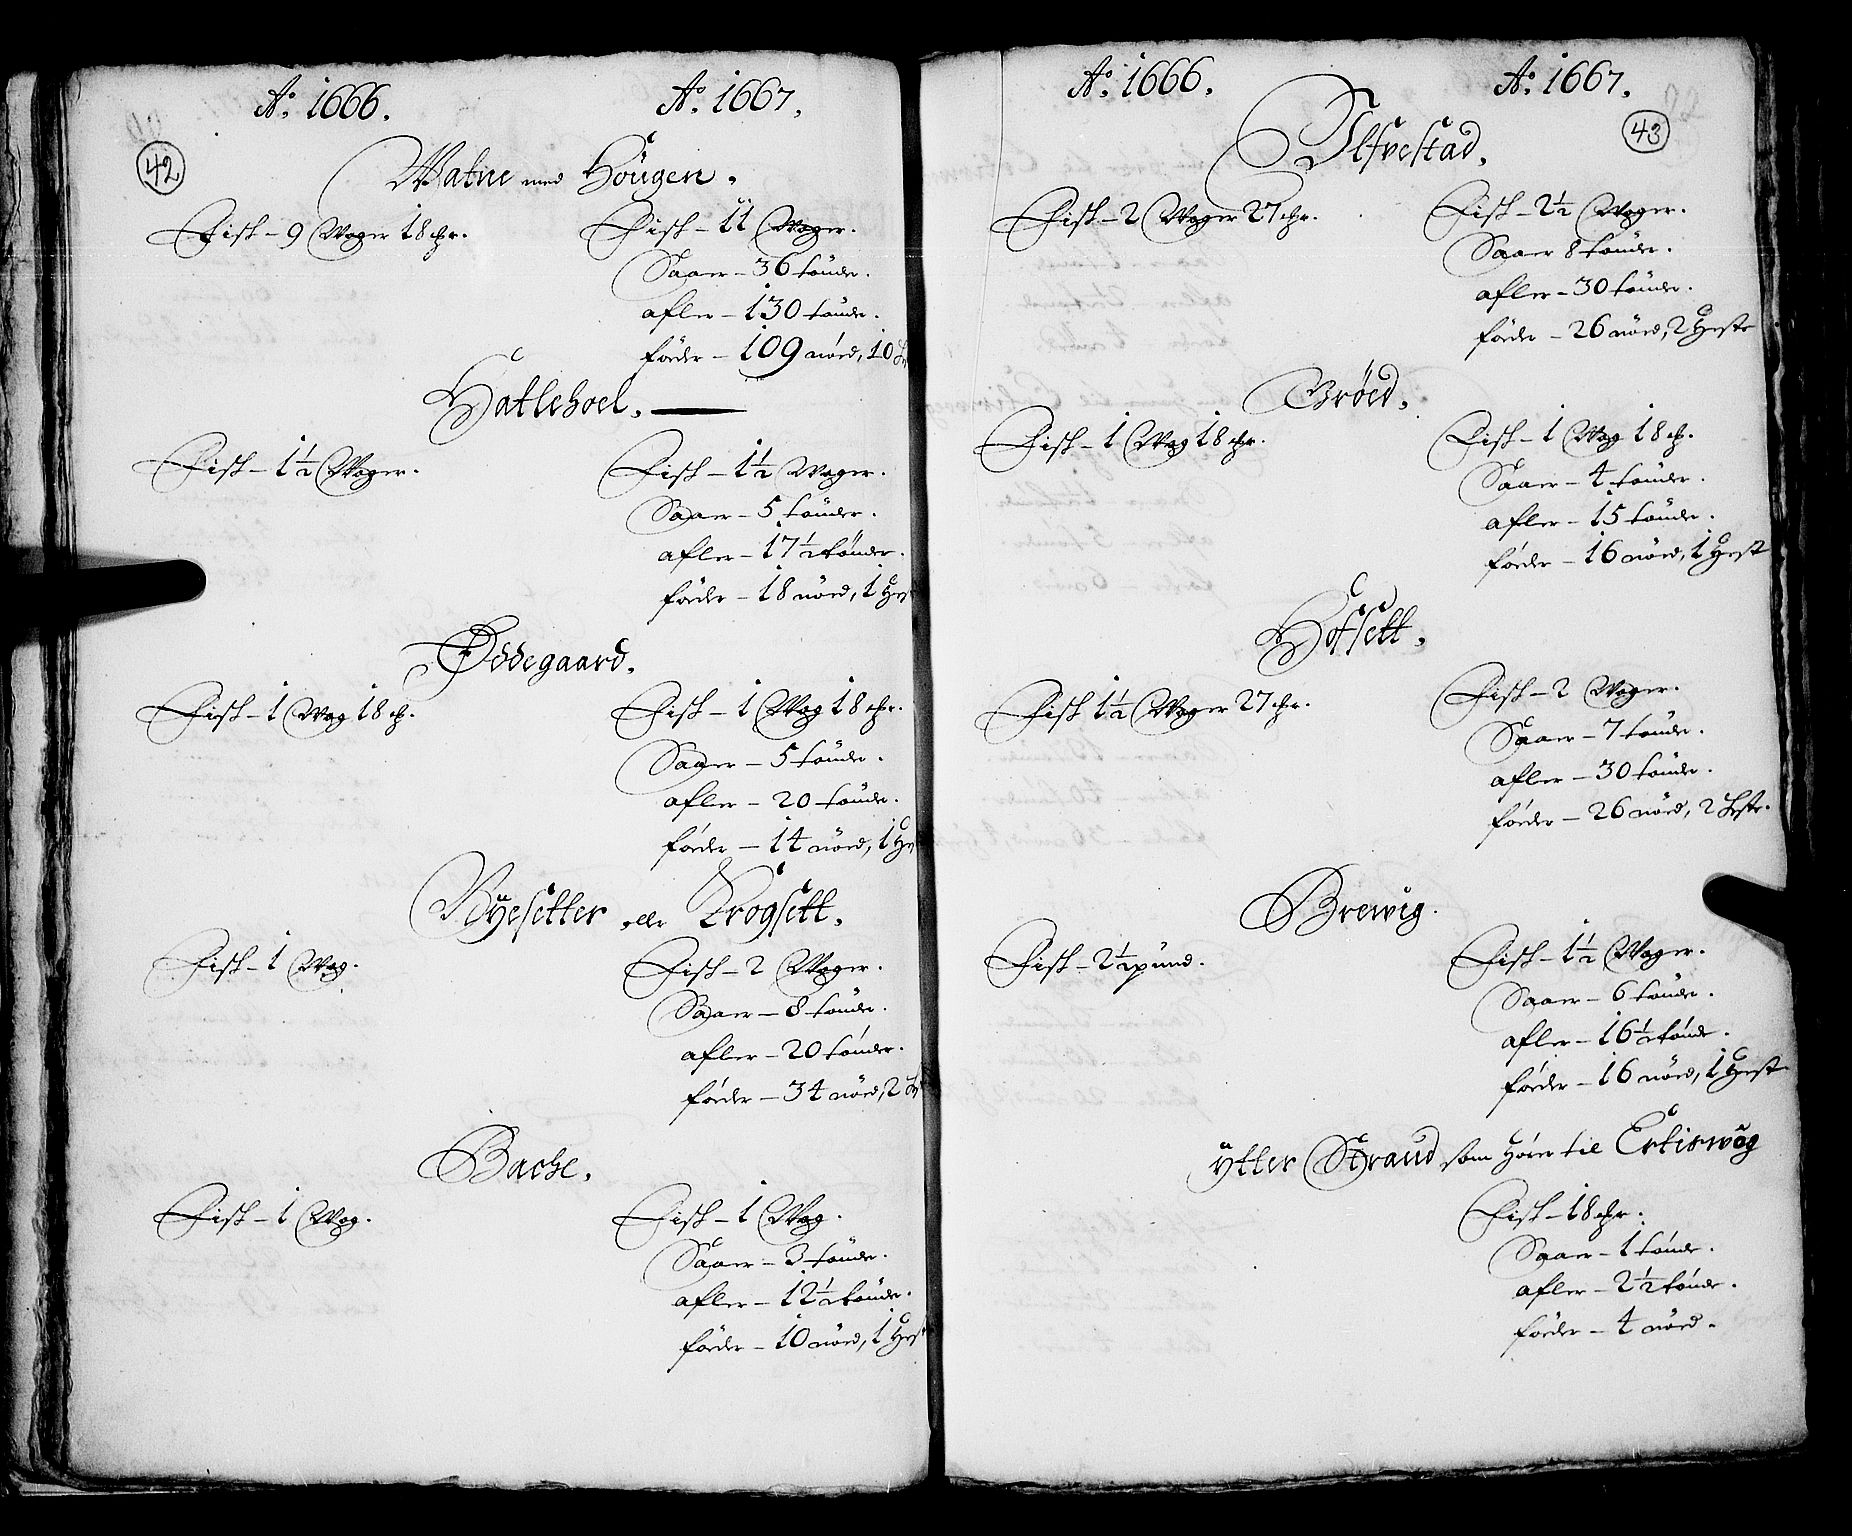 42
Aº. 1666. Aº. 1667.
Watne med Hougen.
Fisk - 9 Woger 18 chr. Fisk - 11 Woger.
Saaer - 36 tønder.
afler - 130 tønder.
føeder - 109 nöed, 10
Hatlehoel.
Fisk - 1½ Woger. Fisk - 1½ Woger.
Saaer - 5 tønder.
afler - 17½ tønder.
føeder - 18 nöed, 1 Hest
Ødegaard.
Fisk - 1 Wog 18 chr. Fisk - 1 Wog 18 chr.
Saaer - 5 tønder.
afler - 20 tønder.
føeder - 14 nöed, 1
Byesetter eller Krogsett.
Fisk - 1 Wog. Fisk - 2 Woger.
Saaer - 8 tønder.
afler - 20 tønder.
føeder - 34 nöed, 2
Bache.
Fisk - 1 Wog. Fisk - 1 Wog.
Saaer - 3 tønder.
afler - 12½ tønder.
føeder - 10 nöed, 1 Hest
43
Aº. 1666. Aº. 1667.
Ulfvestad.
Fisk - 2 Woger 27 chr. Fisk - 2½ Woger.
Saaer 8 tønder.
afler - 30 tønder.
föder - 26 nöed, 2 Heste
Bröed.
Fisk - 1 Wog 18 chr. Fisk - 1 Wog 18 chr.
Saaer - 4 tønder.
afler - 15 tønder.
føeder - 16 nöed, 1 Hest
Hofsett.
Fisk 1½ Woger 27 chr. Fisk - 2 Woger.
Saaer - 7 tønder.
afler - 30 tønder.
føeder - 26 nöed, 2 Heste.
Brewig.
Fisk - 2½ pund. Fisk - 1½ Woger.
Saaer - 6 tønder.
afler - 16½ tønder.
føeder - 16 nöed, 1 Hest
Ytter Strand som hörer til Ertiswog
Fisk - 18 chr.
Saaer - 1 tønde.
afler - 2½ tønde.
føeder - 4 nöed.